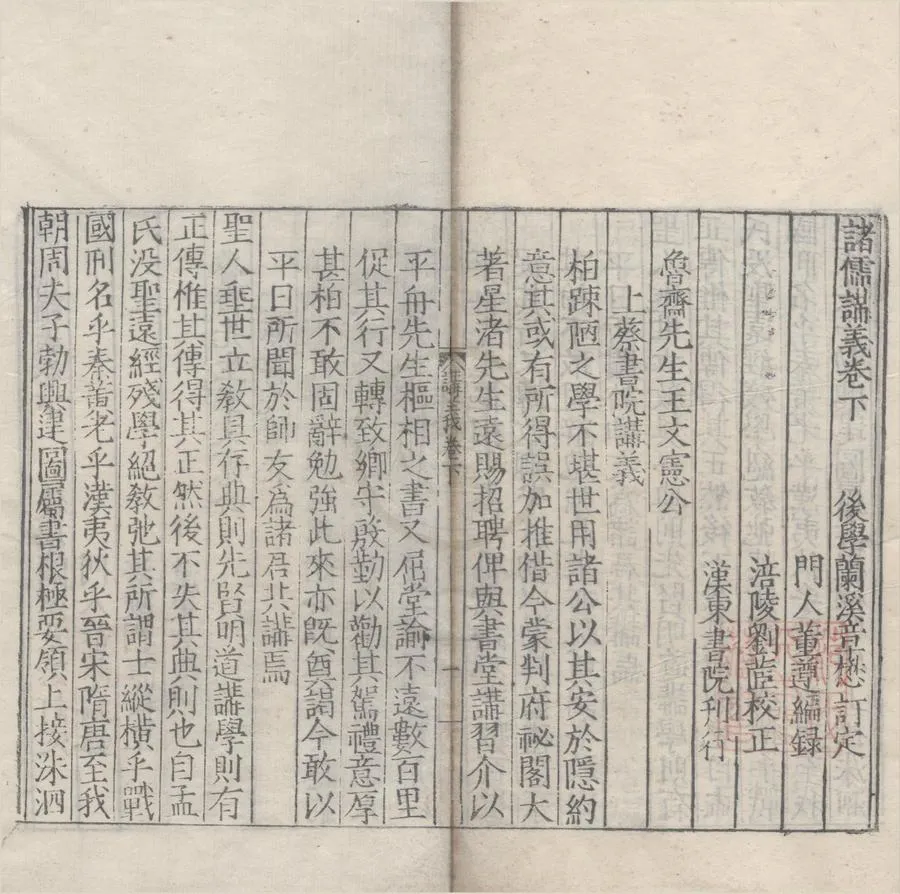 諸儒講義卷下
後學蘭溪章懋訂定
門人董遵編録
涪陵劉茝校正
漢東書院刊行
魯齋先生王文憲公
上蔡書院講義
柏踈陋之學不堪世用諸公以其安於隱約
意其或有所得誤加推借今蒙判府祕閣大
著星渚先生遠賜招聘俾與書堂講習介以
講義卷下
一
平舟先生樞相之書又佀堂諭不遠數百里
促其行又轉致鄉守殷勤以勸其駕禮意厚
甚柏不敢固辭勉強此來亦旣奠謁今敢以
平日所聞於師友爲諸君共講焉
聖人垂世立敎具存典則先賢明道講學則有
正傳惟其傳得其正然後不失其典則也自孟
氏没聖遠經殘學絕敎弛其所謂士縱横乎戰
國刑名乎秦黄老乎漢夷狄乎晉宋隋唐至我
朝周夫子勃興建圖屬書根極要領上接洙泗